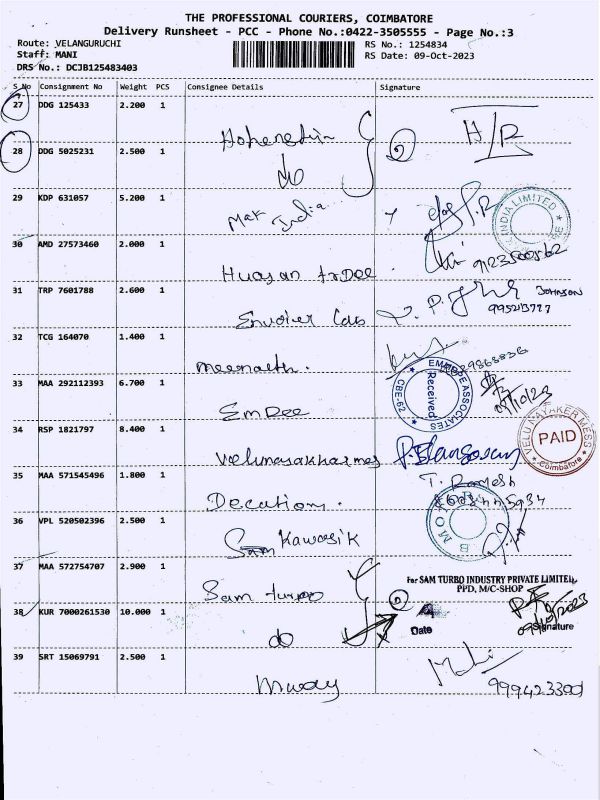 THE PROFESSIONAL COURIERS, COIMBATORE
Delivery Runsheet - PCC - Phone No.:0422-3505555 - Page No.:3
Route: VELANGURUCHI
Staff: MANI
DRS No.: DCJB125483403
RS No.: 1254834
RS Date: 09-Oct-2023
S No Consignment No Weight PCS Consignee Details Signature
27 DDG 125433 2.200 1
Hohenstein H/R
28 DDG 5025231 2.500 1
do
29 KDP 631057 5.200 1
Mak India
INDIA LIMITED
30 AMD 27573460 2.000 1
Huasan
31 TRP 7601788 2.600 1
JOHNSON
32 TCG 164070 1.400 1
Meenakth.
33 MAA 292112393 6.700 1
EmDee
EMDEE ASSOCIATES
Received
CBE-62
34 RSP 1821797 8.400 1
VELU NAYAKER MESS
PAID
Coimbatore
35 MAA 571545496 1.800 1
T. Ramesh
Decation.
36 VPL 520502396 2.500 1
Sam Kawasik
37 MAA 572754707 2.900 1
Sam turbo
For SAM TURBO INDUSTRY PRIVATE LIMITED,
PPD, M/C-SHOP
38 KUR 7000261530 10.000 1
do
Date Signature
39 SRT 15069791 2.500 1